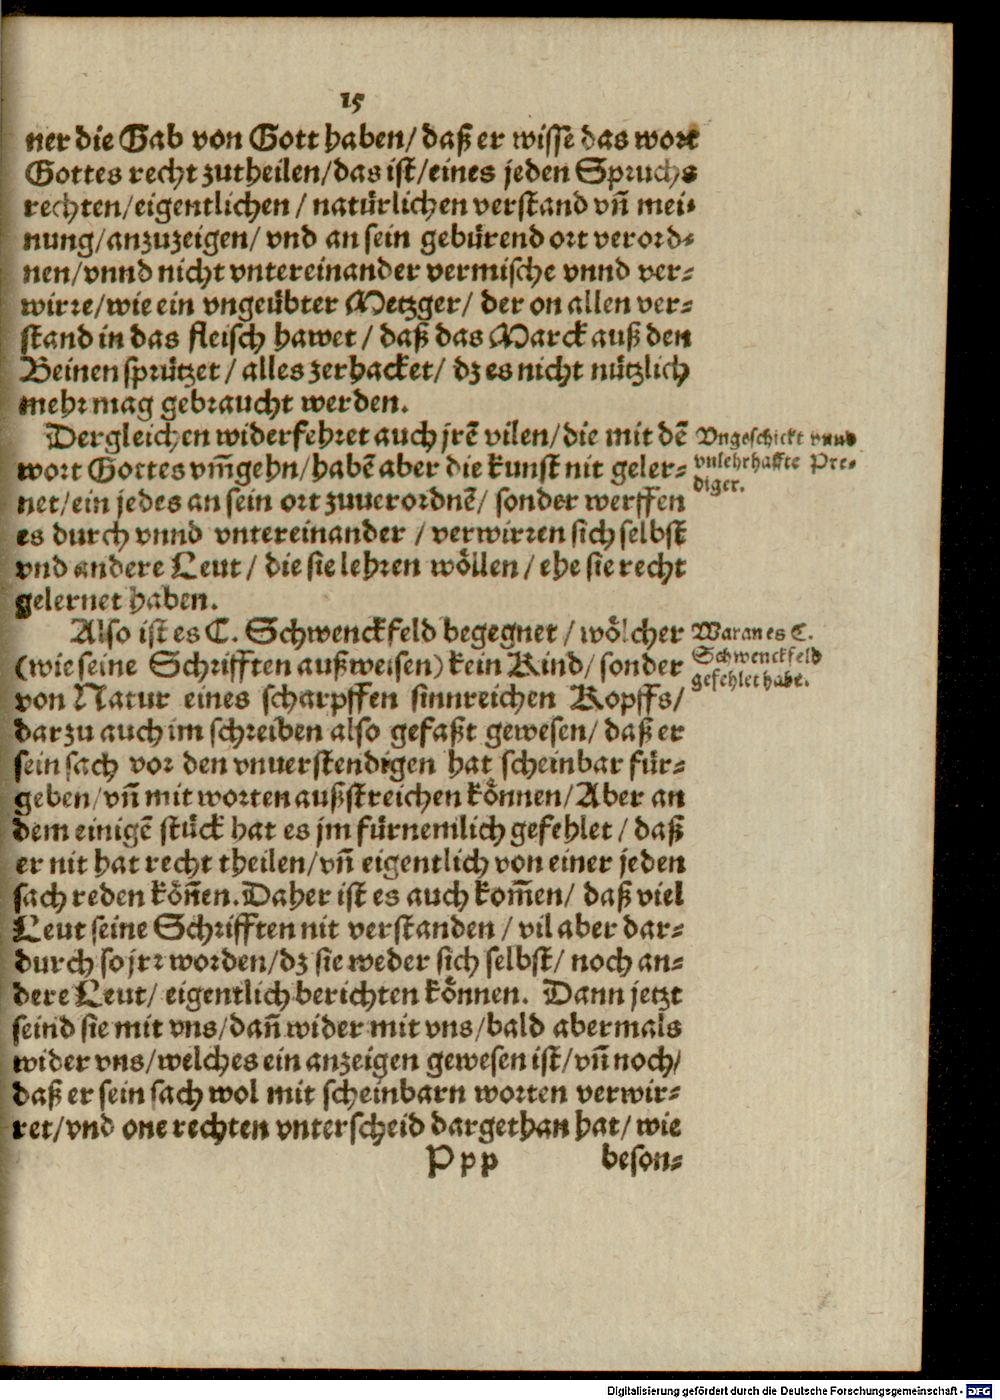 15
ner die Gab von Gott haben/ daß er wisse das wort
Gottes recht zutheilen/das ist/eines jeden Spruchs
rechten/eigentlichen / natürlichen verstand vñ mei-
nung/anzuzeigen/ vnd an sein gebürend ort verord-
nen/vnnd nicht vntereinander vermische vnnd ver-
wirre/wie ein vngeübter Metzger/ der on allen ver-
stand in das fleisch hawet / daß das Marck auß den
Beinen sprützet / alles zerhacket/ dz es nicht nützlich
mehr mag gebraucht werden.
Dergleichen widerfehret auch jrē vilen/die mit dē
Vngeschickt vnnd
wort Gottes vm̄gehn/habē aber die kunst nit geler-
vnlehrhaffte Pre-
net/ein jedes an sein ort zuuerordnē/ sonder werffen
diger.
es durch vnnd vntereinander / verwirren sich selbst
vnd andere Leut / die sie lehren wöllen / ehe sie recht
gelernet haben.
Also ist es C. Schwenckfeld begegnet / wölcher
Waran es C.
(wie seine Schrifften außweisen) kein Kind/ sonder
Schwenckfeld
von Natur eines scharpffen sinnreichen Kopffs/
gefehlet habe.
darzu auch im schreiben also gefaßt gewesen/ daß er
sein sach vor den vnuerstendigen hat scheinbar für-
geben/vñ mit worten außstreichen können/Aber an
dem einigē stück hat es jm fürnemlich gefehlet / daß
er nit hat recht theilen/vñ eigentlich von einer jeden
sach reden köñen. Daher ist es auch kom̄en/ daß viel
Leut seine Schrifften nit verstanden / vil aber dar-
durch so jrr worden/dz sie weder sich selbst/ noch an-
dere Leut/ eigentlich berichten können. Dann jetzt
seind sie mit vns/dañ wider mit vns/bald abermals
wider vns/welches ein anzeigen gewesen ist/vñ noch/
daß er sein sach wol mit scheinbarn worten verwir-
ret/vnd one rechten vnterscheid dargethan hat/ wie
Ppp beson-
Digitalisierung gefördert durch die Deutsche Forschungsgemeinschaft - DFG